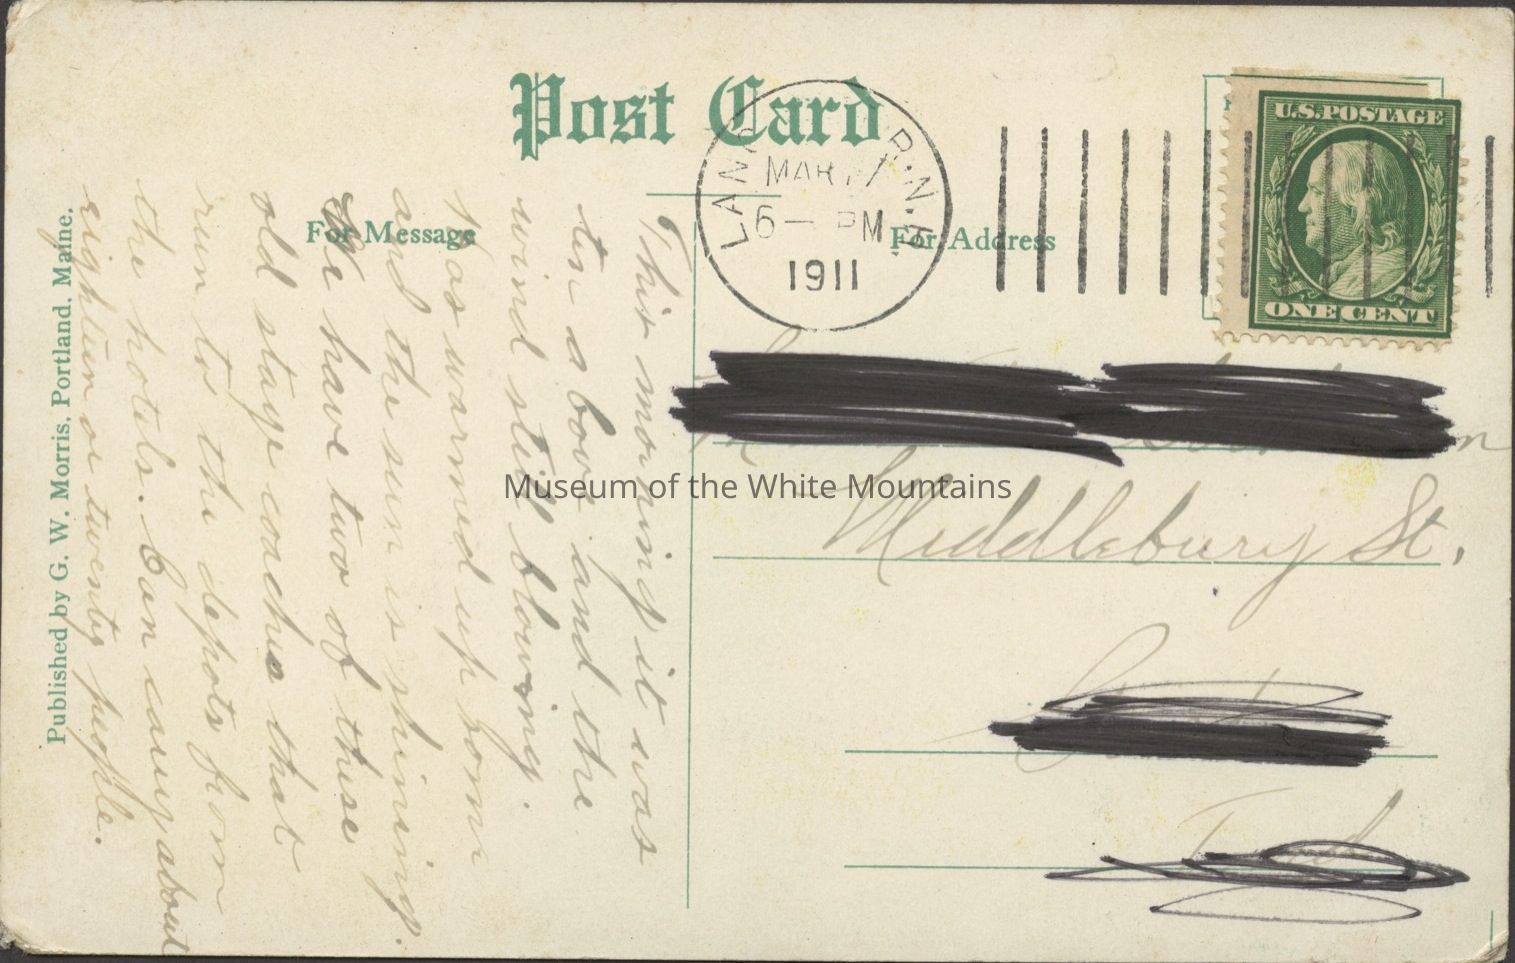 Post Card
For Message
For Address
LAN R. N.H.
MAR 7
6 — PM
1911
U.S. POSTAGE
ONE CENT
This morning it was
ten above and the
wind still blowing.
Has warmed up some
and the sun is shining.
We have two of these
old stage coaches that
run to the depots from
the hotels. Can carry about
eighteen or twenty people.
Middlebury St.
Ind
Museum of the White Mountains
Published by G. W. Morris, Portland, Maine.